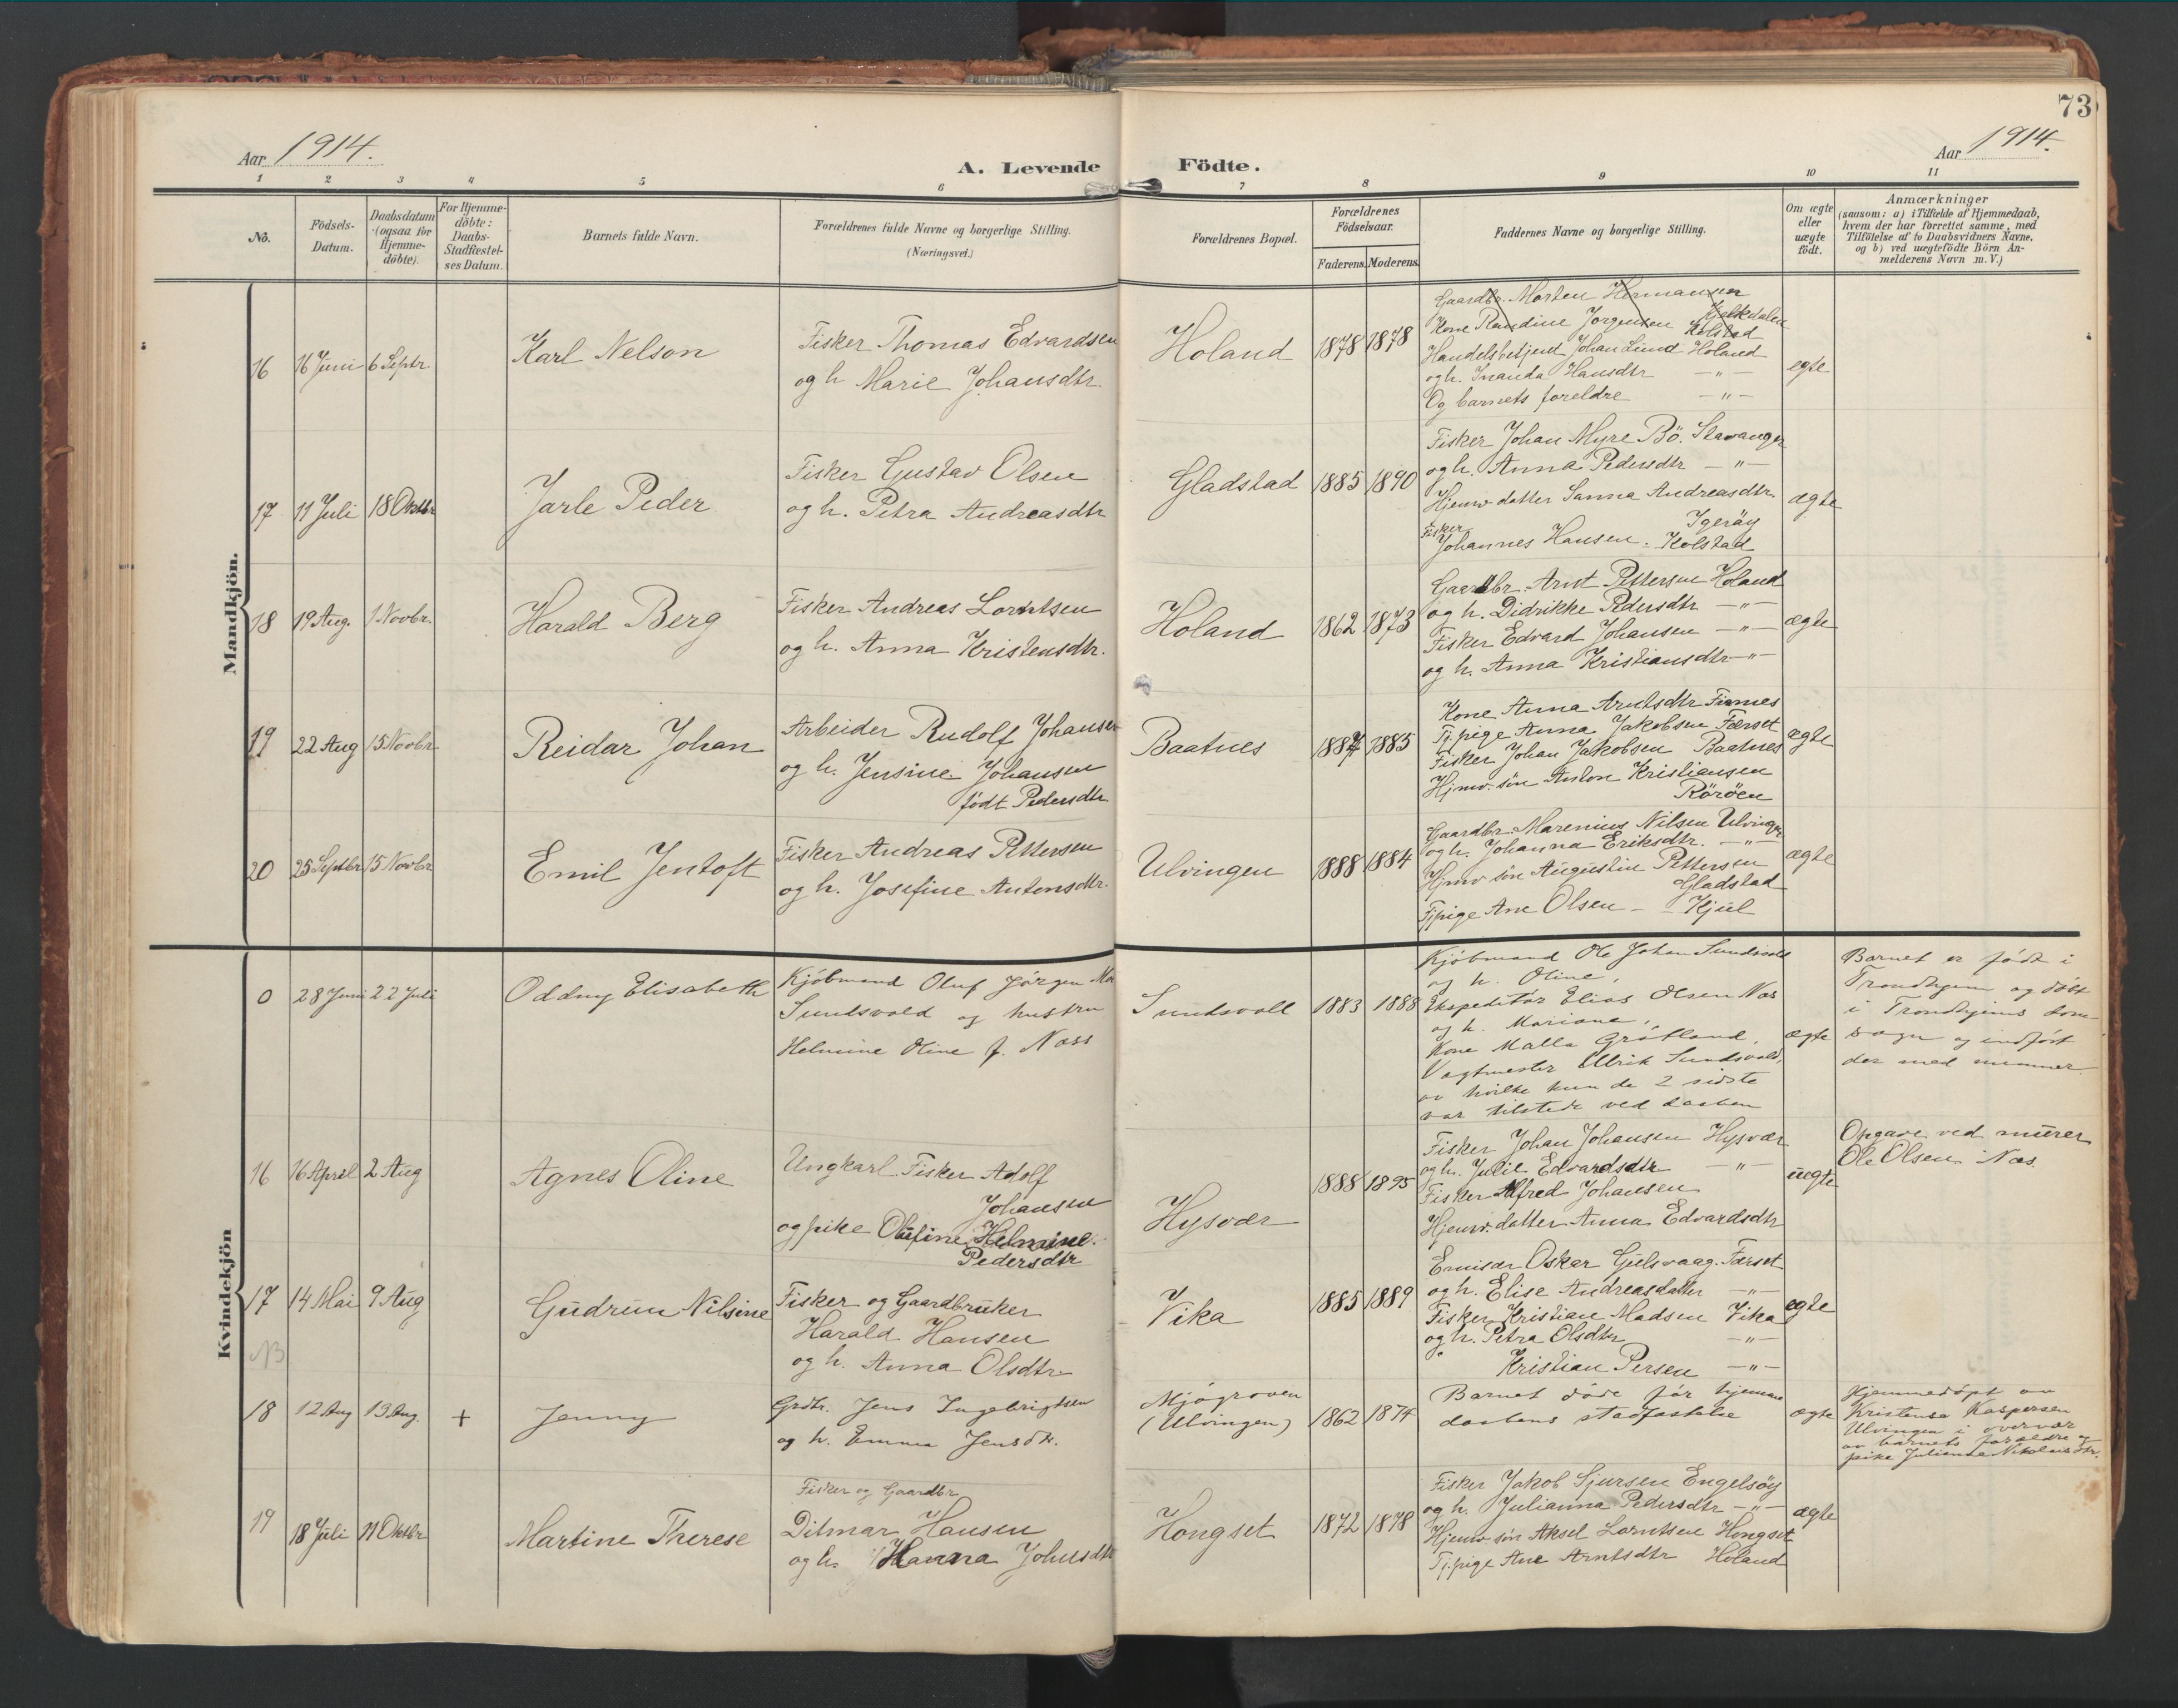 73
Aar 1914.
A. Levende Födte.
Aar 1914.
1 2 3 4 5 6 7 8 9 10 11
No.
Födsels-
Datum.
Daabsdatum
(ogsaa for
Hjemme-
döbte).
For Hjemme-
döbte:
Daabs-
Stadfæstel-
ses Datum.
Barnets fulde Navn.
Forældrenes fulde Navne og borgerlige Stilling.
(Næringsvei.)
Forældrenes Bopæl.
Forældrenes
Födselsaar.
Faderens. Moderens.
Faddernes Navne og borgerlige Stilling.
Om ægte
eller
uægte
födt.
Anmærkninger
(saasom: a) i Tilfælde af Hjemmedaab,
hvem der har forrettet samme, med
Tilföielse af to Daabsvidners Navne,
og b) ved uægtefödte Börn An-
melderens Navn m.V.)
Mandkjön.
16 16 Juni 6 Septr.
Karl Nelson
Fisker Thomas Edvardsen
og h Marie Johansdtr.
Holand 1878 1878
Gaardbr. Morten Hermansen
Kone Randine Jorgensen Kolstad
Handelsbetjent Johan Lund Holand
og h. Inanda Hansdtr —"—
Og barnets foreldre —"—
egte
17 11 Juli 18 Oktbr
Jarle Peder
Fisker Gustav Olsen
og h. Petra Andreasdtr
Gladstad 1885 1890
Fisker Johan Myre Bö. Stavanger
og h. Anna Pedersdtr —"—
Hjemv datter Sanna Andreasdtr.
Igeröy
Fisker
Johannes Hansen. Kolstad
ægte
18 19 Aug. 1 Novbr.
Harald Berg
Fisker Andreas Lorntsen
og h. Anna Kristensdtr.
Holand 1862 1873
Gaardbr Arnt Pettersen Holand
og h. Didrikke Pedersdtr —"—
Fisker Edvard Johansen —"—
og h. Anna Kristiansdtr —"—
ægte
19 22 Aug 15 Novbr
Reidar Johan
Arbeider Rudolf Johansen
og h. Jensine Johansen
födt Pedersdtr.
Baatnes 1884 1885
Kone Anna Arntsdtr
Tj.pige Anna Jakobsen Færset
Fisker Johan Jakobsen Baatnes
Hjmv. sön Anton Kristiansen
Röröen
ægte
20 25 Septbr 15 Novbr
Emil Jentoft
Fisker Andreas Pettersen
og h. Josefine Antonsdtr.
Ulvingen 1888 1884
Gaardbr Marenius Nilsen Ulvingen
og h. Johanna Eriksdtr. —"—
Hjmv sön Augustin Pettersen
Gladstad
Tjpige Ane Olsen — Kjul
ægte
Kvindekjön
0 28 Juni 22 Juli
Oddny Elisabeth
Kjöbmand Oluf Jörgen
Sundsvold og hustru
Helmine Oline f. Næss
Sundsvoll 1883 1888
Kjöbmand Ole Johan Sundsvold
og h. Oline,
Ekspeditör Elias Olsen Næs
og h. Mariane,
Kone Malla Gråtland,
Vagtmester Ulrik Sundsvold,
av hvilke kun de 2 sidste
var tilstede ved daaben
ægte
Barnet er födt i
Trondhjem og döbt
i Trondhjems dom-
sogn og indfört
der med nummer.
16 16 April 2 Aug
Agnes Oline
Ungkarl Fisker Adolf
Johansen
og pike Helmine
Pedersdtr
Hysvær 1888 1895
Fisker Johan Johansen Hysvær
og h. Julie Edvardsdtr —"—
Fisker Alfred Johansen
Hjemv. datter Anna Edvardsdtr
uegte
Opgave ved murer
Ole Olsen Næs.
17 14 Mai 9 Aug
NB
Gudrun Nilsine
Fisker og Gaardbruker
Harald Hansen
og h. Anna Olsdtr
Vika 1885 1889
Emisær Oskar Gjelsvaag. Færset
og h. Elise Andreasdatter —"—
Fisker Kristian Madsen Vika
og h. Petra Olsdtr —"—
Kristian Persen —"—
egte
18 12 Aug 13 Aug. +
Jenny
Grdbr. Jens Ingebrigtsen
og h. Emma Jensdtr.
Mjögroven
(Ulvingen) 1862 1874
Barnet döde för hjemme
daabens stadfæstelse
ægte
Hjemmedöpt av
Kristensa Kaspersen
Ulvingen i overvær
av barnets forældre og
pike Julianne Nikolaisdtr.
19 18 Juli 11 Oktbr
Martine Therese
Fisker og Gaardbr
Ditmar Hansen
og h. Hanna Johnsdtr
Hongset 1872 1878
Fisker Jakob Sjursen Engelsöy
og h. Julianna Pedersdtr —"—
Hjemv sön Aksel Lorntsen Hongset
Tj.pige Ane Arntsdtr Holand
ægte